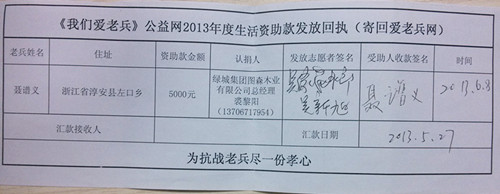 《我们爱老兵》公益网2013年度生活资助款发放回执（寄回爱老兵网）
老兵姓名 住址 资助款金额 认捐人 发放志愿者签名 受助人收款签名 时间
聂谱义 浙江省淳安县左口乡 5000元 绿城集团图森木业有限公司总经理裘黎阳(13706717954) 聂谱义 2013.6.8
汇款接收人 汇款日期 2013.5.27
为抗战老兵尽一份孝心